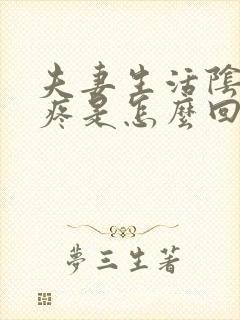 夫妻生活陰
疼是怎麼回
夢三生著